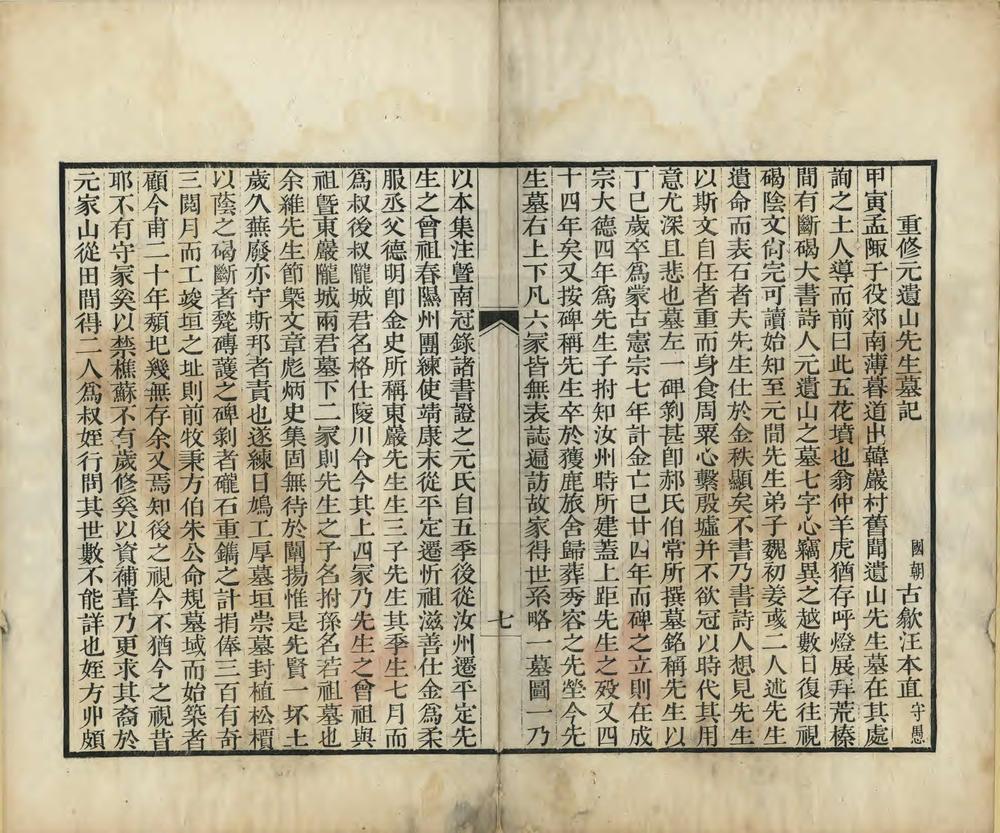 重修元遺山先生墓記
國朝古歙汪本直守愚
甲寅孟陬子役郊南薄暮道出韓巖村舊聞遺山先生墓在其處
詢之土人導而前曰此五花墳也翁仲羊虎猶存呼燈展拜荒榛
間有斷碣大書詩人元遺山之墓七字心竊異之越數日復往視
碣陰文尙完可讀始知至元間先生弟子魏初姜彧二人述先生
遺命而表石者夫先生仕於金秩顯矣不書乃書詩人想見先生
以斯文自任者重而身食周粟心繫殷墟并不欲冠以時代其用
意尤深且悲也墓左一碑剝甚卽郝氏伯常所撰墓銘稱先生以
丁巳歲卒爲蒙古憲宗七年計金亡已廿四年而碑之立則在成
宗大德四年爲先生子拊知汝州時所建蓋上距先生之歿又四
十四年矣又按碑稱先生卒於獲鹿旅舍歸葬秀容之先塋今先
生墓右上下凡六冢皆無表誌遍訪故家得世系略一墓圖一乃
七
以本集注暨南冠錄諸書證之元氏自五季後從汝州遷平定先
生之曾祖春隰州團練使靖康末從平定遷忻祖滋善仕金爲柔
服丞父德明卽金史所稱東巖先生生三子先生其季生七月而
爲叔後叔隴城君名格仕陵川令今其上四冢乃先生之曾祖與
祖暨東巖隴城兩君墓下二冢則先生之子名拊孫名若祖墓也
余維先生節槩文章彪炳史集固無待於闡揚惟是先賢一坏土
歲久蕪廢亦守斯邦者責也遂練日鳩工厚墓垣崇墓封植松檟
以蔭之碣斷者甃磚護之碑剝者礲石重鐫之計捐俸三百有奇
三閱月而工竣垣之址則前牧秉方伯朱公命規墓域而始築者
顧今甫二十年頹圯幾無存余又焉知後之視今不猶今之視昔
耶不有守冢奚以禁樵蘇不有歲修奚以資補葺乃更求其裔於
元家山從田間得二人爲叔姪行問其世數不能詳也姪方丱頗